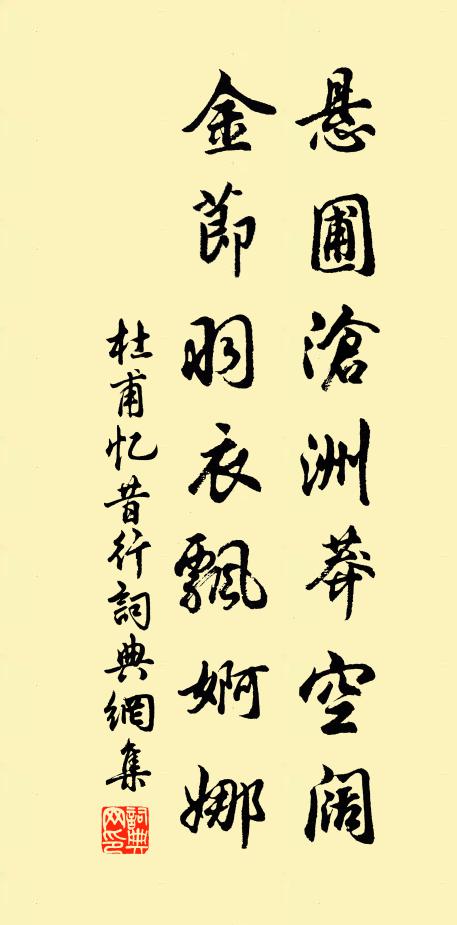 悬圃滄洲莽空阔
金節羽衣飄婀娜
杜甫忆昔行詞典網集
詞典网印